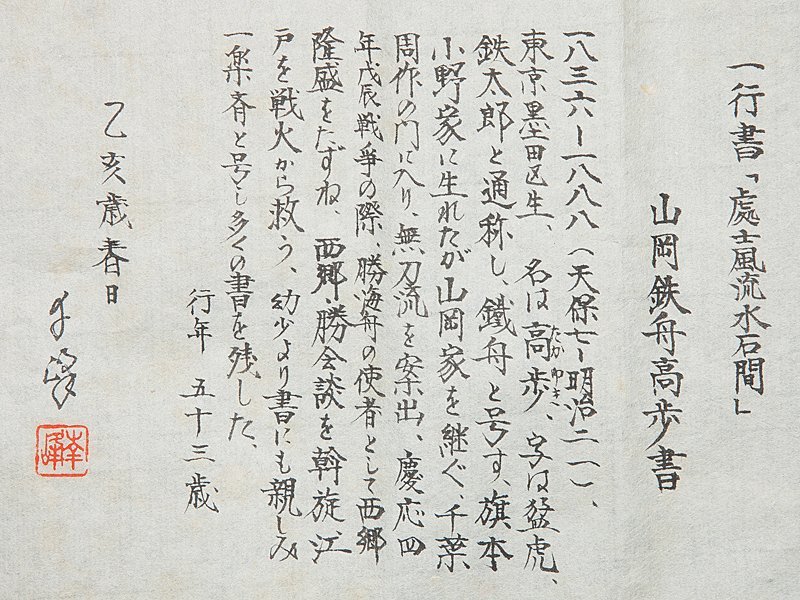 一行書「處士風流水石間」
山岡鉄舟高歩書
一八三六ー一八八八（天保七ー明治二一）、
東京墨田区生、名は高歩、字は猛虎、
たかゆき
鉄太郎と通称し、鐵舟と号す、旗本
小野家に生れたが山岡家を継ぐ、千葉
周作の門に入り、無刀流を案出、慶応四
年戊辰戦争の際、勝海舟の使者として西郷
隆盛をたずね、西郷・勝会談を斡旋江
戸を戦火から救う、幼少より書にも親しみ
一楽斉と号し多くの書を残した、
行年 五十三歳
乙亥歳春日